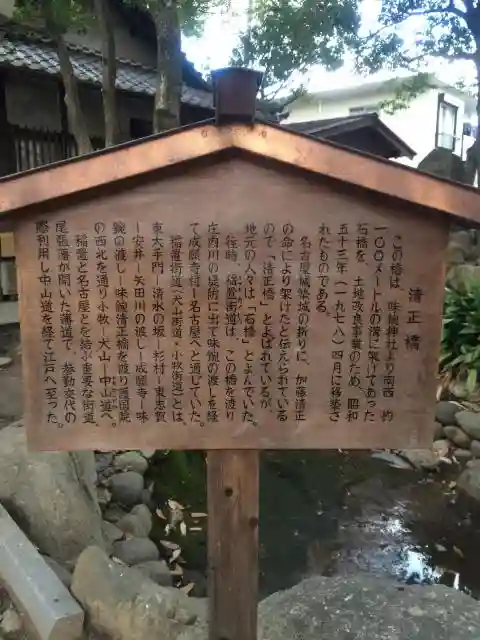 清正橋
この橋は、味鋺神社より南西　約
一〇〇メートルの溝に架けてあった
石橋を、土地改良事業のため、昭和
五十三年（一九七八）四月に移築さ
れたものである。
名古屋城築城の折りに、加藤清正
の命により架けたと伝えられている
ので「清正橋」とよばれているが、
地元の人々は「石橋」とよんでいた。
往時、稲置街道は、この橋を渡り
庄内川の堤防に出て味鋺の渡しを経
て成願寺村－名古屋へと通じていた。
稲置街道（犬山街道・小牧街道）とは、
東大手門－清水の坂－杉村－東志賀
－安井－矢田川の渡し－成願寺－味
鋺の渡し－味鋺清正橋を渡り護国院
の西北を通り小牧－犬山－中山道へ
稲置と名古屋とを結ぶ重要な街道、
尾張藩が開いた藩道で、参勤交代の
際利用し中山道を経て江戸へ至った。